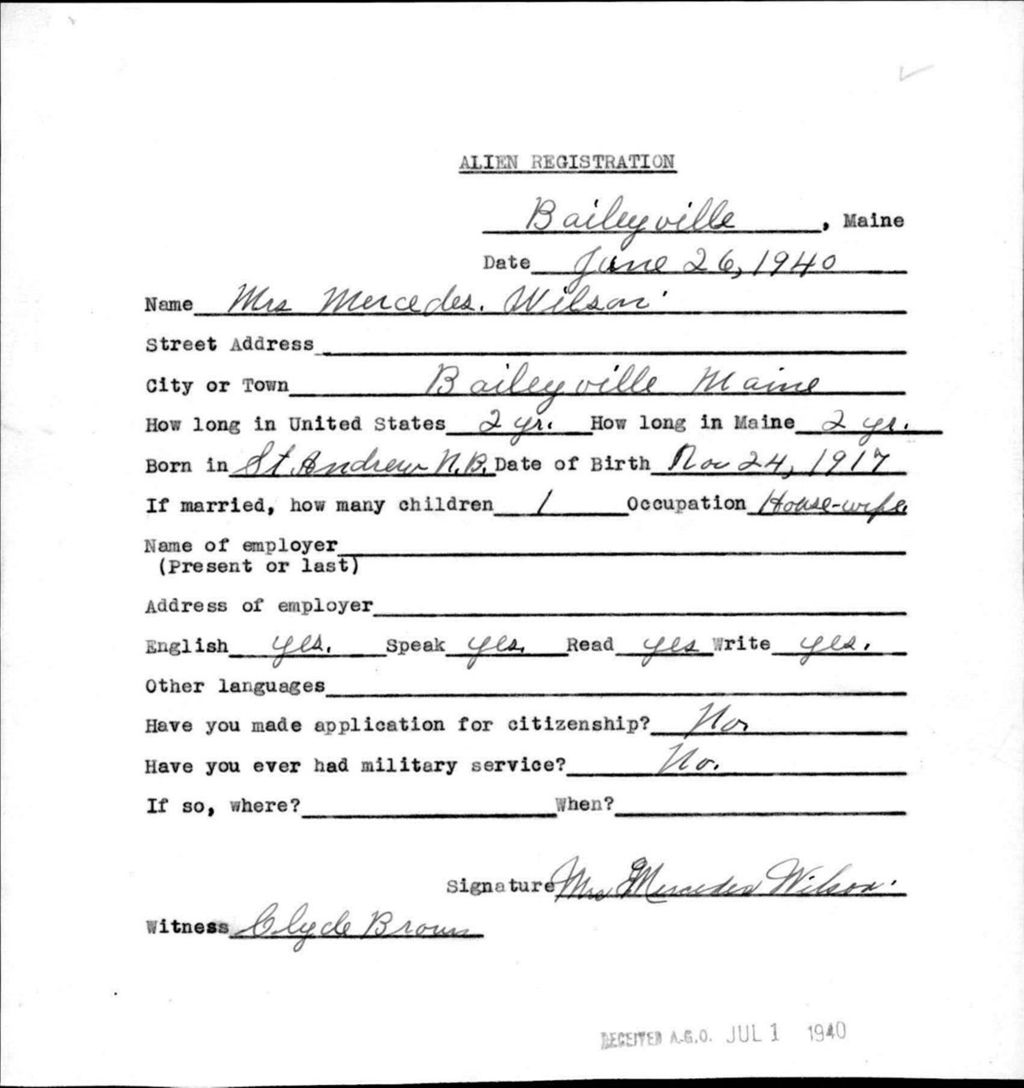 ALIEN REGISTRATION
Baileyville, Maine
Date June 26, 1940
Name Mrs Mercedes. Wilson
Street Address
City or Town Baileyville Maine
How long in United States 2 yr. How long in Maine 2 yr.
Born in St. Andrew N.B. Date of Birth Nov 24, 1917
If married, how many children 1 Occupation House-wife
Name of employer
(Present or last)
Address of employer
English yes. Speak yes. Read yes Write yes.
Other languages
Have you made application for citizenship? No
Have you ever had military service? No.
If so, where? When?
Signature Mrs Mercedes Wilson.
Witness Clyde Brown
RECEIVED A.G.O. JUL 1 1940